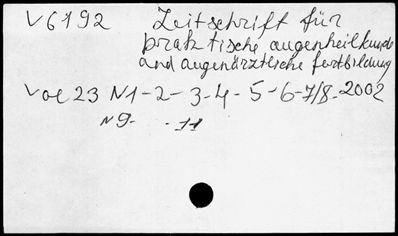 V6192 Zeitschrift für
praktische augenheilkunde
and augenärztliche fortbildung
Vol 23 N1-2-3-4-5-6-7/8-2002
N9- -11